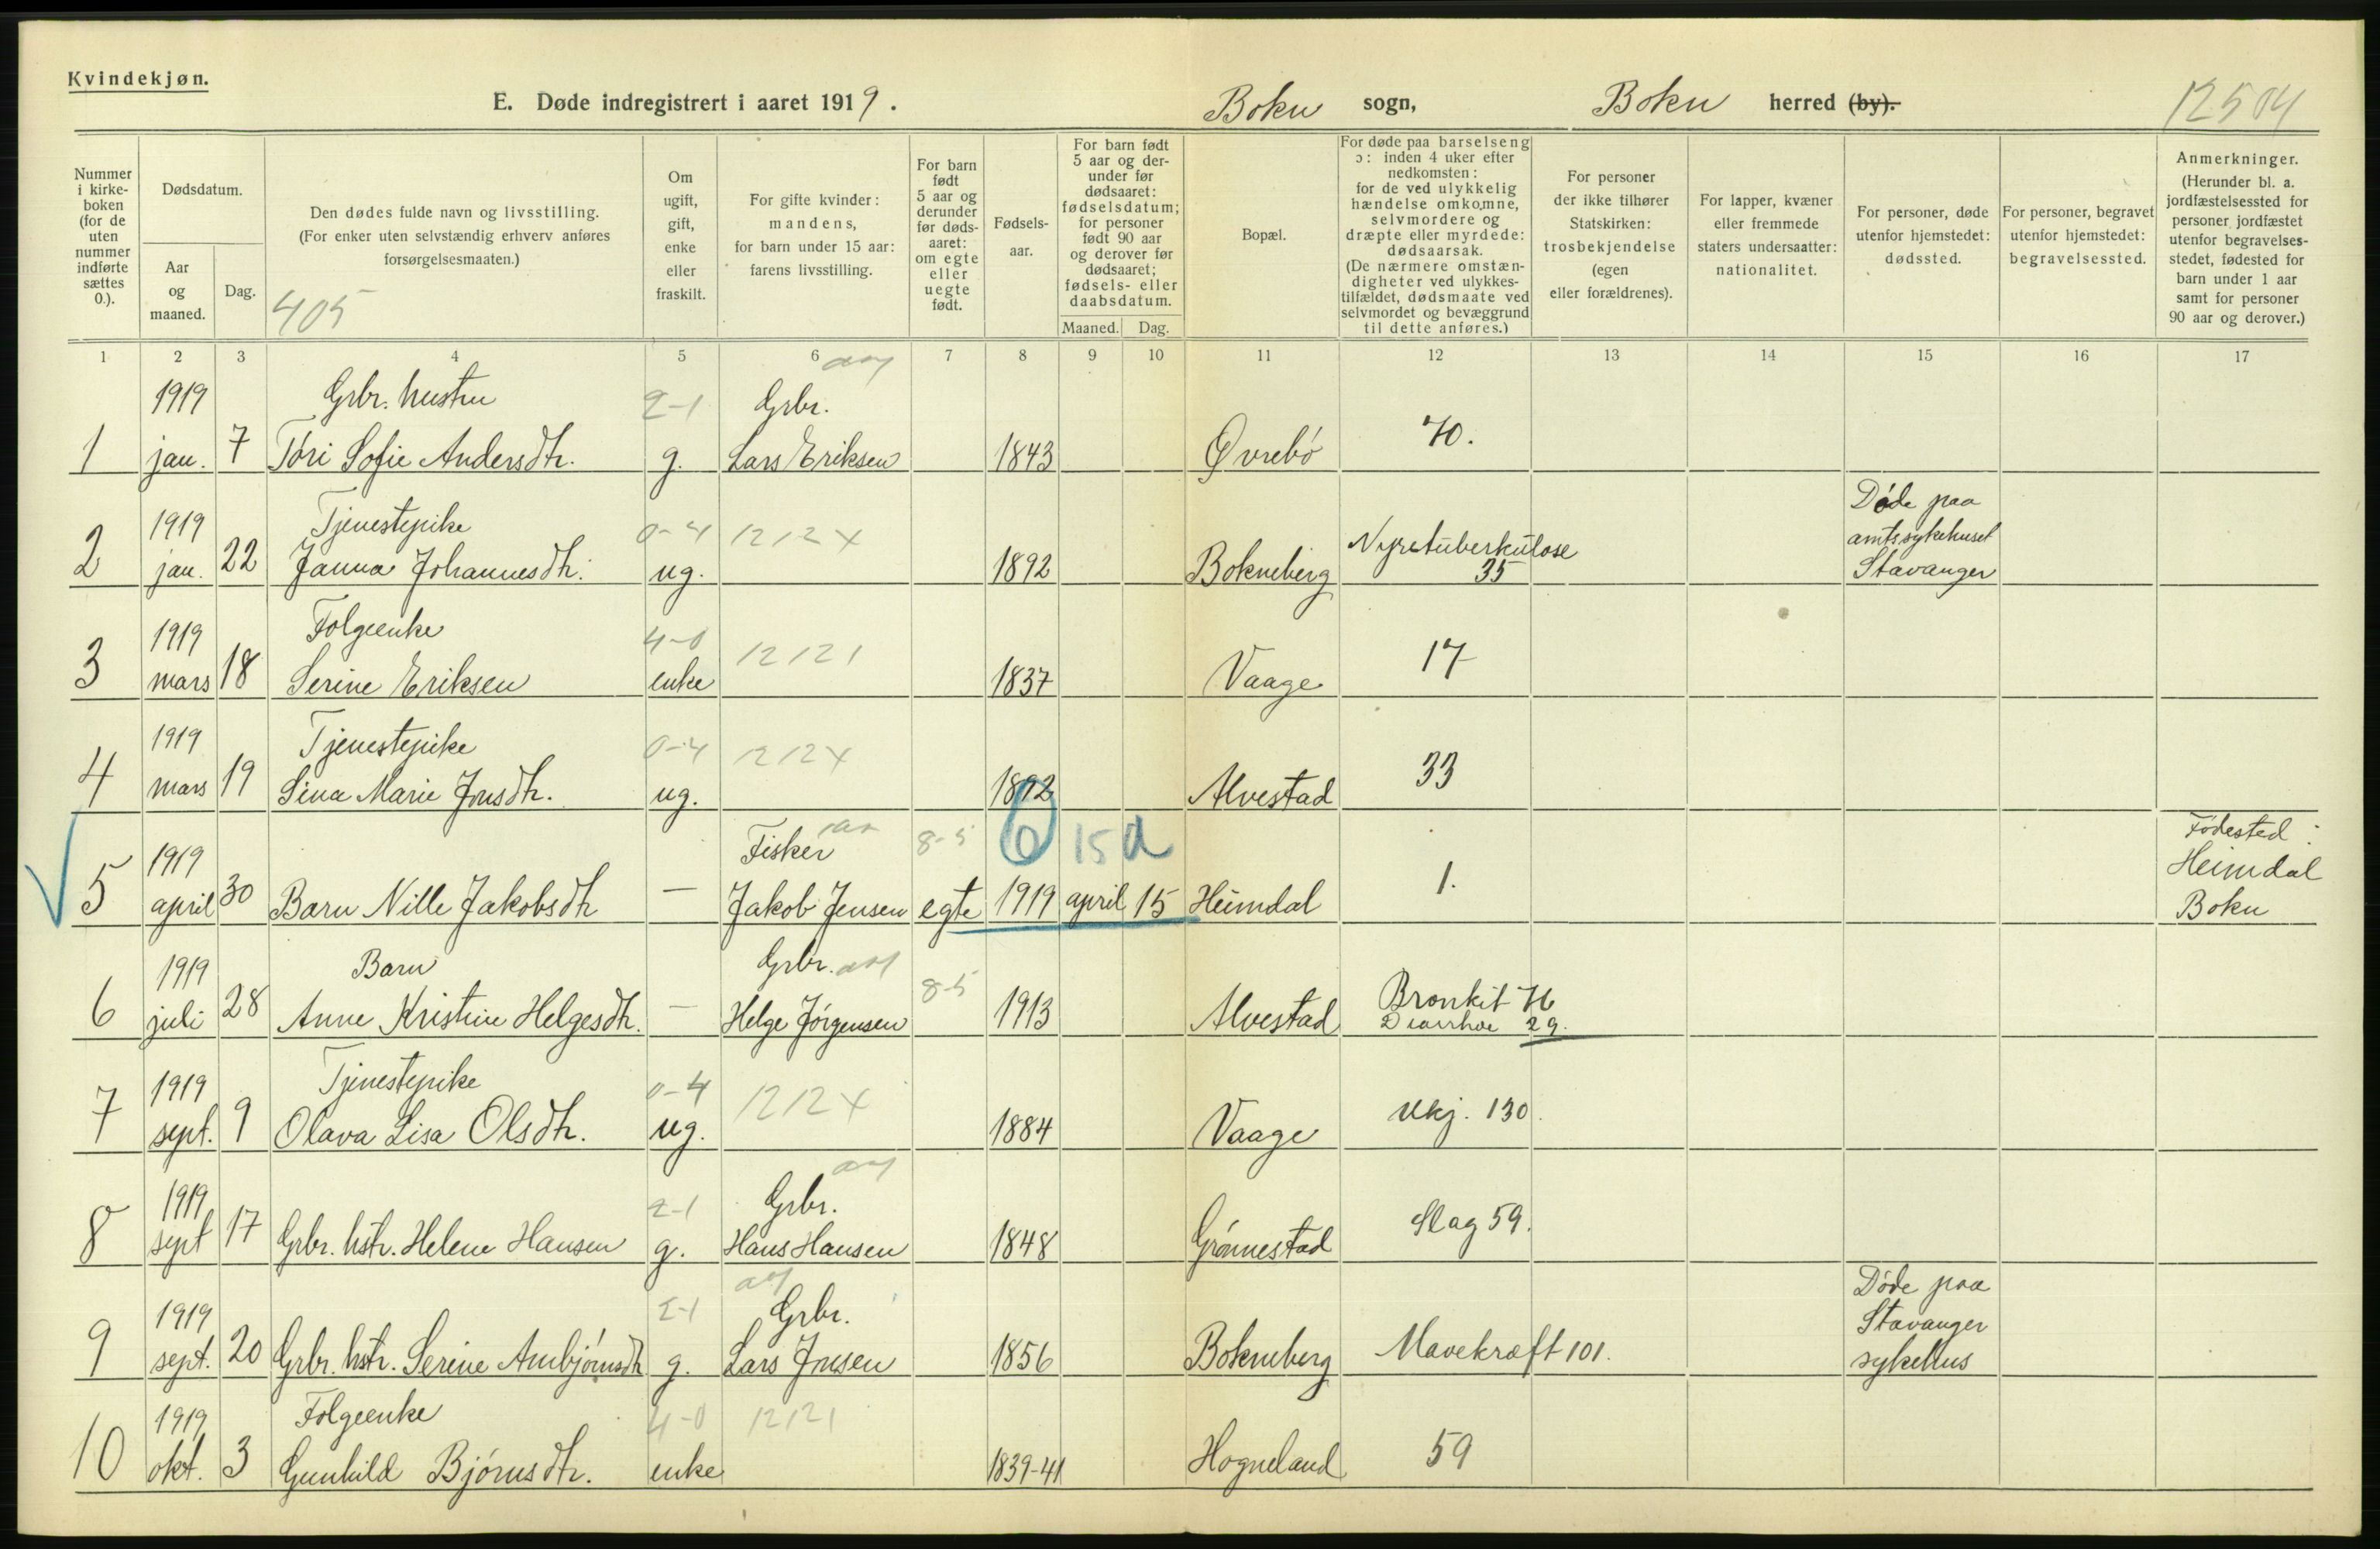 Kvindekjøn.
E. Døde indregistrert i aaret 1919.
Bokn sogn, Bokn herred (by).
12504
Nummer i kirkeboken (for de uten nummer indførte sættes 0.).
Dødsdatum.
Aar og maaned.
Dag.
Den dødes fulde navn og livsstilling.
(For enker uten selvstændig erhverv anføres
forsørgelsesmaaten.)
405
Om ugift, gift, enke eller fraskilt.
For gifte kvinder:
mandens,
for barn under 15 aar:
farens livsstilling.
For barn født 5 aar og derunder før dødsaaret: om egte eller uegte født.
Fødselsaar.
For barn født 5 aar og derunder før dødsaaret: fødselsdatum; for personer født 90 aar og derover før dødsaaret; fødsels- eller daabsdatum.
Maaned. Dag.
Bopæl.
For døde paa barselseng ɔ: inden 4 uker efter nedkomsten: for de ved ulykkelig hændelse omkomne, selvmordere og dræpte eller myrdede: dødsaarsak.
(De nærmere omstændigheter ved ulykkestilfældet, dødsmaate ved selvmordet og bevæggrund til dette anføres.)
For personer der ikke tilhører Statskirken: trosbekjendelse (egen eller forældrenes).
For lapper, kvæner eller fremmede staters undersaatter: nationalitet.
For personer, døde utenfor hjemstedet: dødssted.
For personer, begravet utenfor hjemstedet: begravelsessted.
Anmerkninger.
(Herunder bl. a. jordfæstelsessted for personer jordfæstet utenfor begravelsesstedet, fødested for barn under 1 aar samt for personer 90 aar og derover.)
1 2 3 4 5 6 7 8 9 10 11 12 13 14 15 16 17
1919 Grbr. hustru 2-1 Grbr.
1 jan. 7 Tóri Sofie Andersdtr. g. Lars Eriksen 1843 Øvrebó 70.
1919 Tjenestepike 0-4 1212X Nyretuberkulose Døde paa amtssykehuset
2 jan. 22 Janna Johannesdtr. ug. 1892 Bokneberg 35 Stavanger
1919 Folgeenke 4-0 12121
3 mars 18 Serine Eriksen enke 1837 Vaage 17
1919 Tjenestepike 0-4 1212X
4 mars 19 Sina Marie Jonsdtr. ug. 1892 Alvestad 33
1919 Fisker 8-5 6 15 d Fódested:
5 april 30 Barn Nille Jakobsdtr — Jakob Jensen egte 1919 april 15 Heimdal 1. Heimdal Bokn
1919 Barn Grbr. 8-5 Bronkit 76
6 juli 28 Anne Kristine Helgesdtr. — Helge Jórgensen 1913 Alvestad Diarrhoe 29.
1919 Tjenestepike 0-4 1212X
7 sept. 9 Olava Lisa Olsdtr. ug. 1884 Vaage Ukj. 130.
1919 2-1 Grbr.
8 sept 17 Grbr. hstr. Helene Hansen g. Hans Hansen 1848 Grónnestad Slag 59.
1919 2-1 Grbr. Døde paa Stavanger
9 sept. 20 Grbr. hstr. Serine Ambjórnsdtr g. Lars Jonsen 1856 Bokneberg Mavekræft 101. sykehus
1919 Folgeenke 4-0 12121
10 okt. 3 Gunhild Bjórnsdtr. enke 1839-41 Hogneland 59